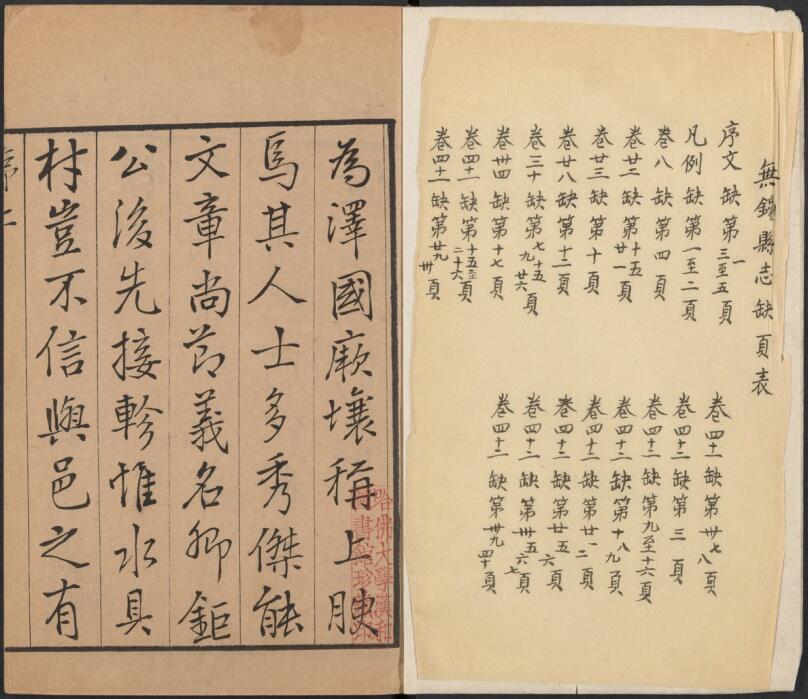 無錫縣志缺頁表
序文 缺第一三至五頁
凡例 缺第一至二頁
卷八 缺第四頁
卷廿二 缺第十五廿一頁
卷廿三 缺第十頁
卷廿八 缺第十二頁
卷三十 缺第七九十五廿六頁
卷卅四 缺第十七頁
卷四十一 缺第十五至二十六頁
卷四十一 缺第廿九卅頁
卷四十一 缺第卅七八頁
卷四十二 缺第三頁
卷四十二 缺第九至十六頁
卷四十二 缺第十八九頁
卷四十二 缺第廿一二頁
卷四十二 缺第廿五六頁
卷四十二 缺第卅五六七頁
卷四十二 缺第卅九四十頁
為澤國厥壤稱上腴
焉其人士多秀傑能
文章尚節義名卿鉅
公後先接軫惟水具
材豈不信與邑之有
序 二
哈佛大學漢和
圖書館珍藏印